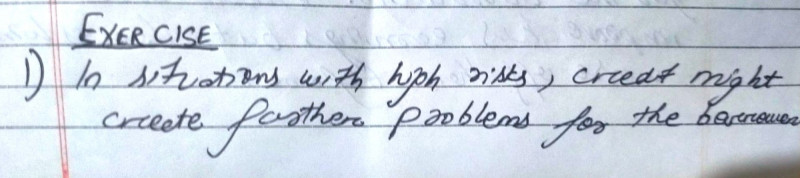 EXERCISE
1) In situations with high risks, credit might
create further problems for the borrower